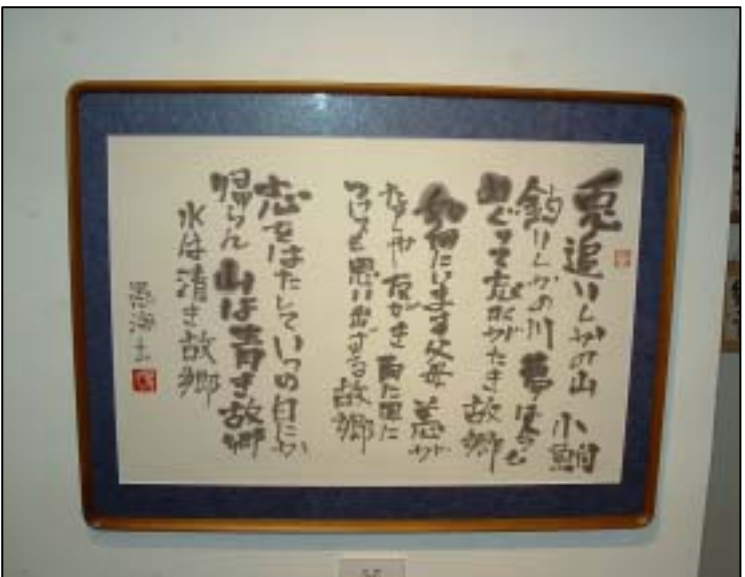 兎追いしかの山 小鮒
釣りしかの川 夢は今も
めぐりて忘れがたき 故郷
如何にいます父母 恙が
なしや 友がき 雨に風に
つけても思い出ずる 故郷
志をはたしていつの日にか
帰らん 山は青き故郷
水は清き故郷